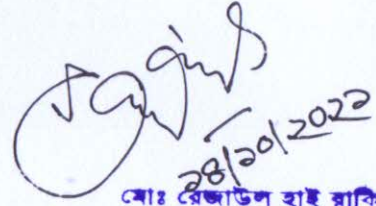 ২৪/১০/২০২২
মোঃ রেজাউল হাই রাকিব